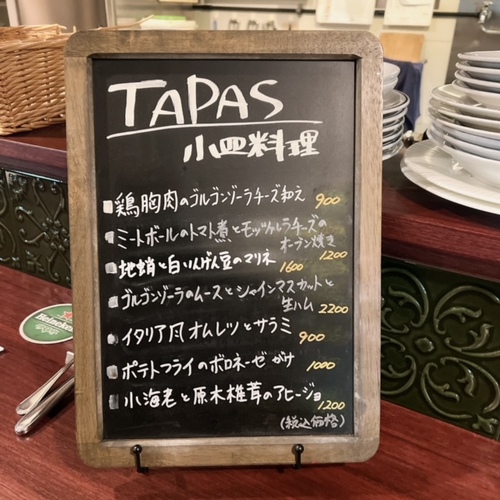 TAPAS
小皿料理
鶏胸肉のゴルゴンゾーラチーズ和え 900
ミートボールのトマト煮とモッツァレラチーズの
オーブン焼き 1200
地蛸と白いんげん豆のマリネ 1600
ゴルゴンゾーラのムースとシャインマスカットと
生ハム 2200
イタリア風オムレツとサラミ 900
ポテトフライのボロネーゼがけ 1000
小海老と原木椎茸のアヒージョ 1200
(税込価格)
Heineken